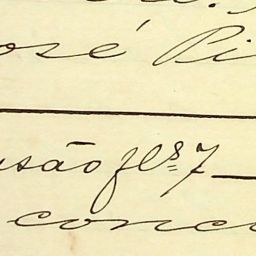 osé Pi
usão fls 7
conc